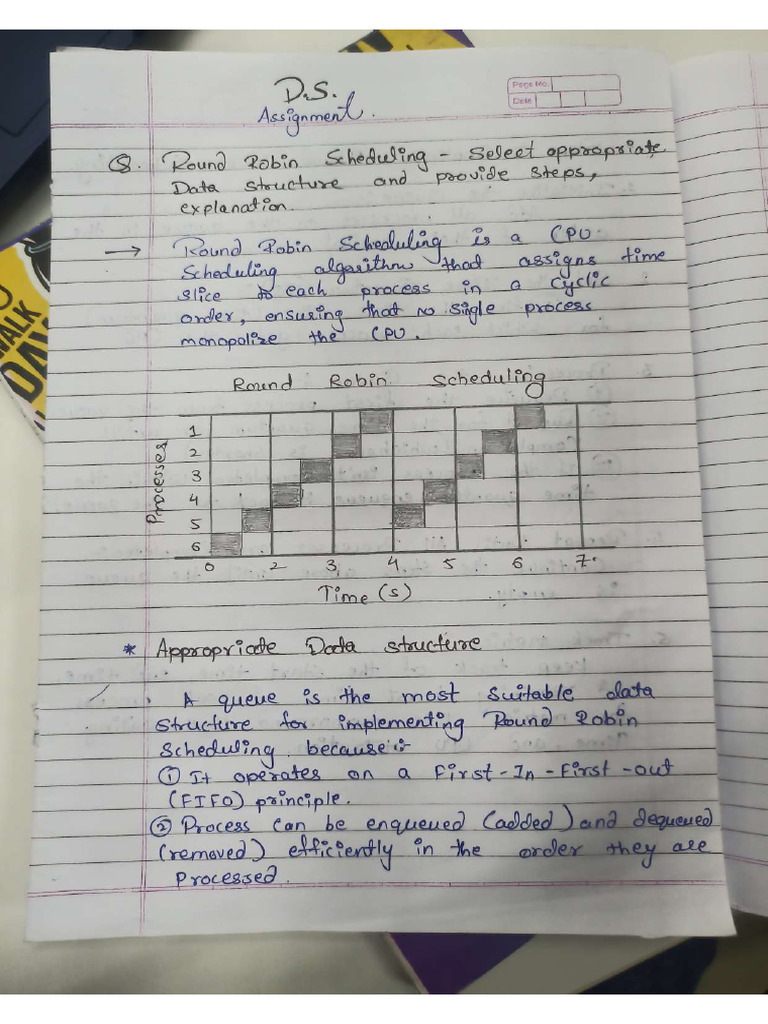 Page No.
Date
D.S.
Assignment.
Q. Round Robin Scheduling - Select appropriate
Data structure and provide steps,
explanation.
→ Round Robin Scheduling is a CPU
Scheduling algorithm that assigns time
slice to each process in a cyclic
order, ensuring that no single process
monopolize the CPU.
Round Robin Scheduling
Processes
1
2
3
4
5
6
0 2 3 4 5 6 7
Time (s)
* Appropriate Data structure
A queue is the most suitable data
structure for implementing Round Robin
Scheduling because:-
① It operates on a First-In-First-out
(FIFO) principle.
② Process can be enqueued (added) and dequeued
(removed) efficiently in the order they are
Processed.
WALK